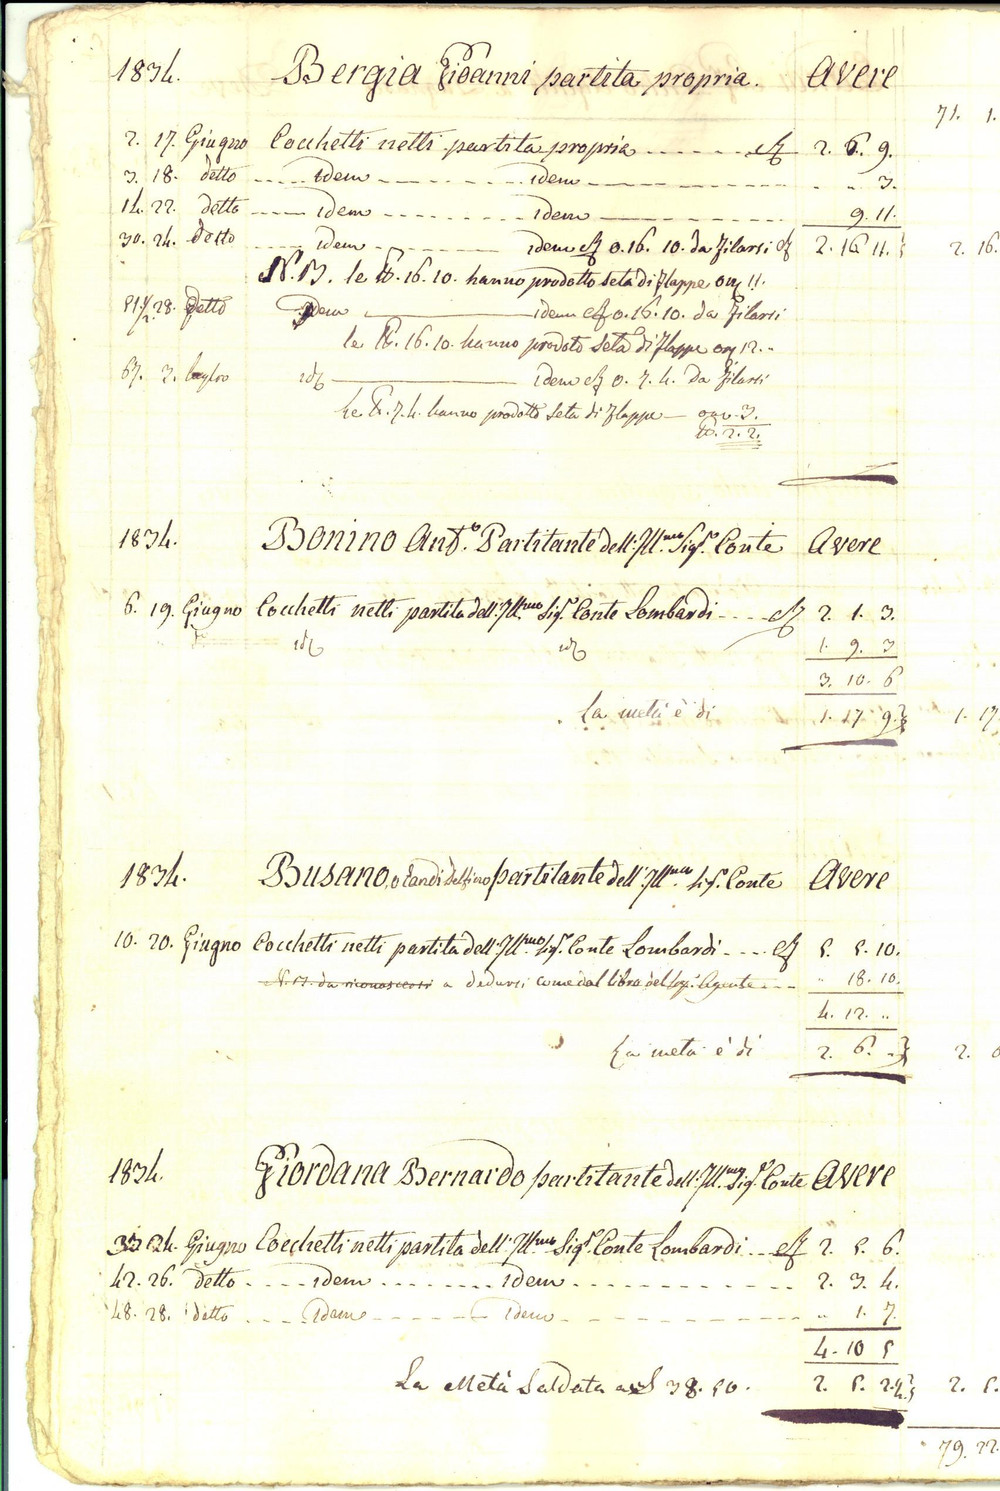 1834. Bergia Gioanni partita propria. Avere
71. 1.
2. 17. Giugno Cocchetti netti partita propria 2. 6. 9.
3. 18. detto idem idem " " 3.
14. 22. detto idem idem 9. 11.
30. 24. detto idem idem 0. 16. 10. da Filarsi 2. 16 11. 2. 16.
N. B. le 16. 10. hanno prodotto seta di flappe on 11.
51. 28. detto Idem idem 0. 16. 10. da Filarsi
le 16. 10. hanno prodoto seta di flappe on 12. "
67. 2. luglio id idem 0. 7. 4. da Filarsi
Le 7. 4. hanno prodotto seta di flappe 3.
2. 2.
1834. Bonino Ant.o Partitante dell'Ill.mo Sig.r Conte Avere
6. 19. Giugno Cocchetti netti partita dell'Ill.mo Sig.r Conte Lombardi 2. 1. 3.
id id 1. 9. 3
3. 10. 6
La metà è di 1. 17 9. 1. 17
1834. Busano, partitante dell'Ill.mo Sig.r Conte Avere
10. 20. Giugno Cocchetti netti partita dell'Ill.mo Sig.r Conte Lombardi 5. 5. 10.
N. B. da riconoscersi a dedursi come dal libro del Sig.r Agente " 18. 10.
4. 12. "
La metà è di 2. 6. " 2. 6
1834. Giordana Bernardo partitante dell'Ill.mo Sig.r Conte Avere
24. Giugno Cocchetti netti partita dell'Ill.mo Sig.r Conte Lombardi 2. 5. 6.
42. 26. detto idem idem 2. 3. 4.
48. 28. detto idem idem " 1. 7.
4. 10 5
La Metà Saldata a 38. 50. 2. 5. 2. 2. 5.
79. 22.